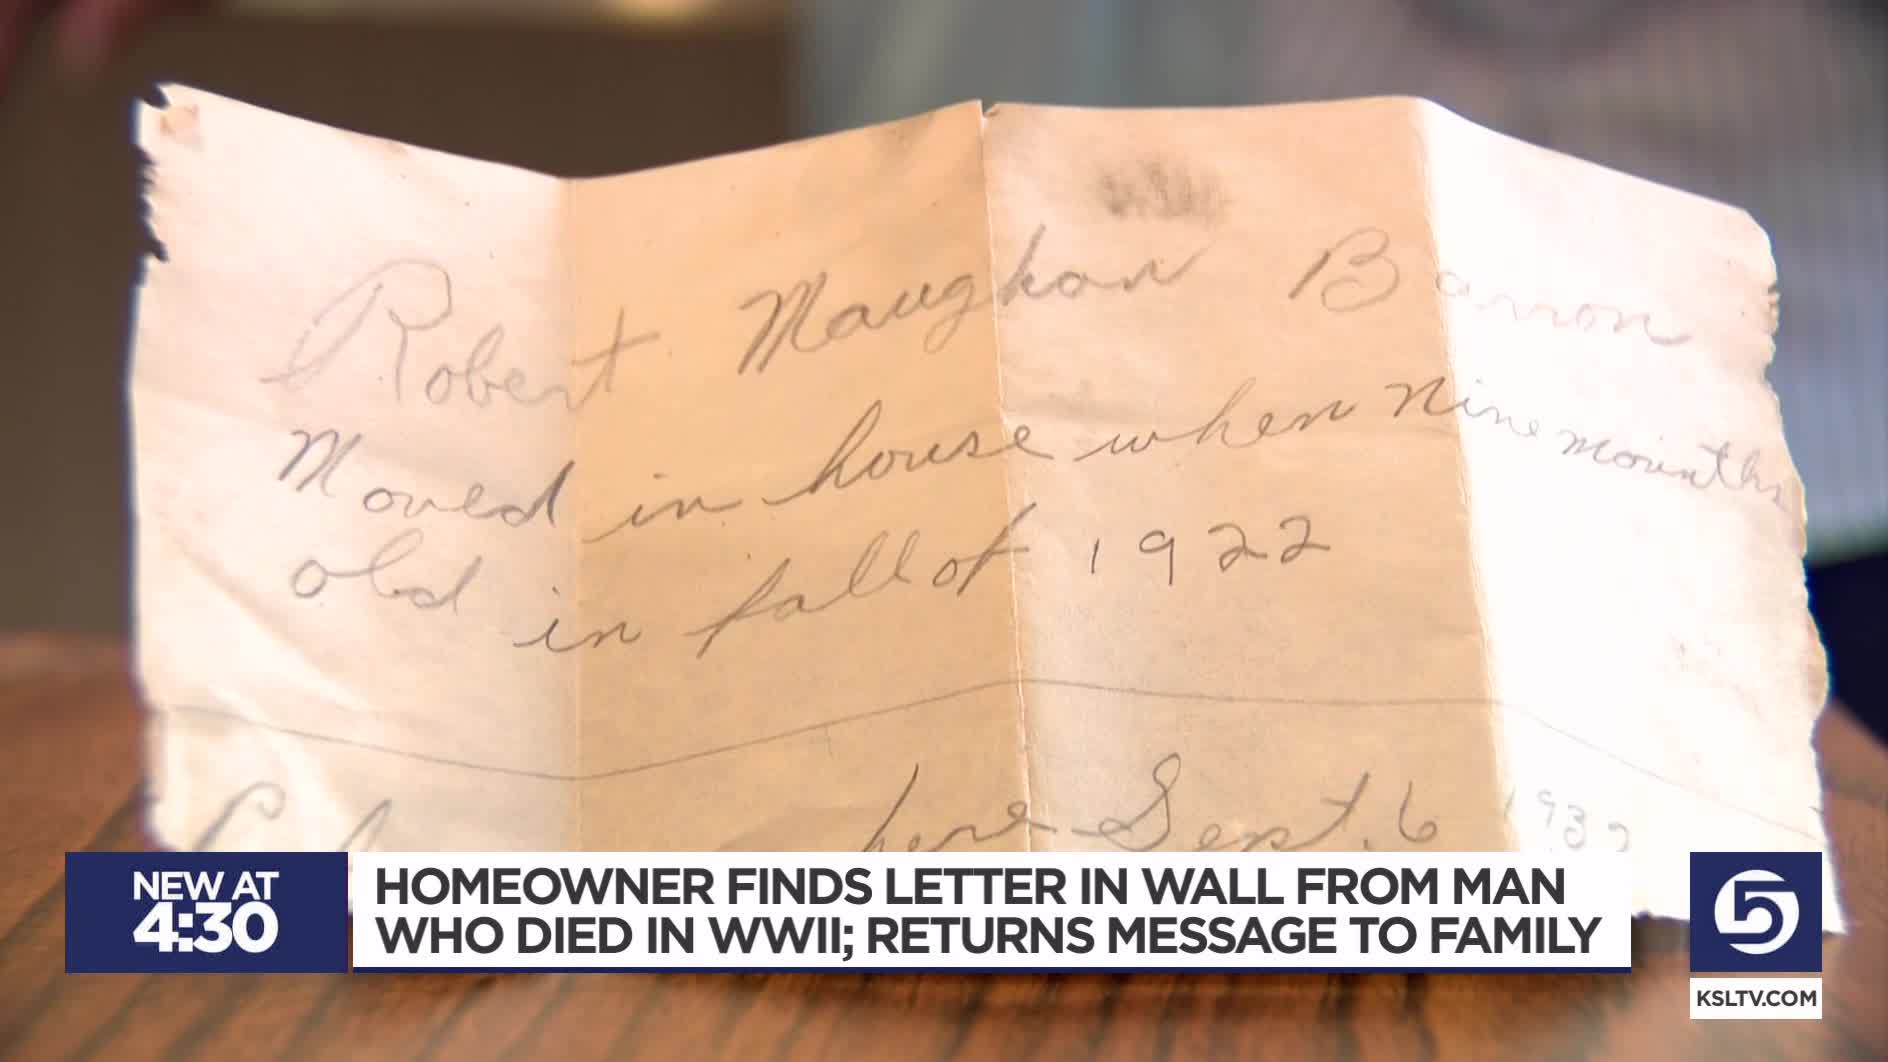 Robert Maughan Barron
Moved in house when Nine Mounths
old in fall of 1922
here Sept. 6 1932
NEW AT
4:30
HOMEOWNER FINDS LETTER IN WALL FROM MAN
WHO DIED IN WWII; RETURNS MESSAGE TO FAMILY
5
KSLTV.COM